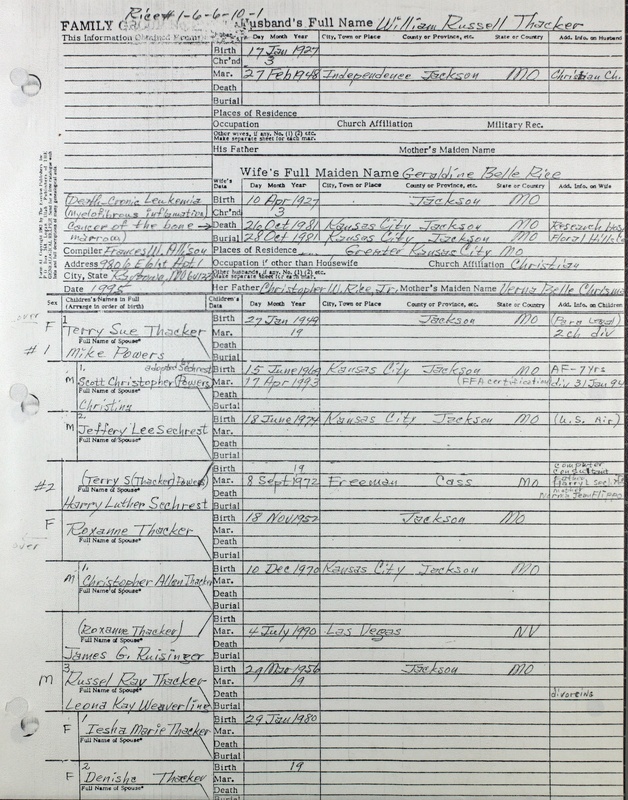 Rice# 1-6-6-10-1
FAMILY GROUP No. Husband's Full Name William Russell Thacker
This Information Obtained From: Day Month Year City, Town or Place County or Province, etc. State or Country Add. Info. on Husband
Birth 17 Jan 1927
Chr'nd 3
Mar. 27 Feb 1948 Independence Jackson MO Christian Ch.
Death
Burial
Places of Residence
Occupation Church Affiliation Military Rec.
Other wives, if any. No. (1) (2) etc.
Make separate sheet for each mar.
His Father Mother's Maiden Name
Wife's Full Maiden Name Geraldine Belle Rice
Wife's Data Day Month Year City, Town or Place County or Province, etc. State or Country Add. Info. on Wife
Death-Cronic Leukemia Birth 10 Apr 1927 Jackson MO
(myelofibrous inflamation) Chr'nd 3
Cancer of the bone → Death 26 Oct 1981 Kansas City Jackson MO Research Hosp
marrow) Burial 28 Oct 1981 Kansas City Jackson MO Floral Hills
Compiler Frances M. Allison Places of Residence Greater Kansas City Mo
Address 9806 E 61st Apt 1 Occupation if other than Housewife Church Affiliation Christian
City, State Raytown, MO Other husbands, if any. No. (1) (2) etc.
Make separate sheet for each mar.
Date 1995 Her Father Christopher W. Rice, Jr. Mother's Maiden Name Verna Belle
Sex Children's Names in Full Children's Data Day Month Year City, Town or Place County or Province, etc. State or Country Add. Info. on Children
(Arrange in order of birth)
over
F 1 Birth 27 Jan 1949 Jackson MO (Para Legal)
Terry Sue Thacker Mar. 19 2 ch div
Full Name of Spouse* Death
#1 Mike Powers Burial
1. adopted Sechrest Birth 15 June 1969 Kansas City Jackson MO AF-7yrs
M Scott Christopher (Powers) Mar. 17 Apr 1993 (FFA certification) div 31 Jan 94
Full Name of Spouse* Death
Christina Burial
2. Birth 18 June 1974 Kansas City Jackson MO (U.S. Air)
M Jeffery Lee Sechrest Mar.
Full Name of Spouse* Death
Burial
Birth 19 computer consultant
#2 (Terry S (Thacker) Powers) Mar. 8 Sept 1972 Freeman Cass Mo father Harry L Sech
Full Name of Spouse* Death mother Norma Jean Flippo
Harry Luther Sechrest Burial
F Birth 18 Nov 1952 Jackson MO
Roxanne Thacker Mar.
over Full Name of Spouse* Death
Burial
1. Birth 10 Dec 1970 Kansas City Jackson MO
M Christopher Allen Thacker Mar.
Full Name of Spouse* Death
Burial
Birth
(Roxanne Thacker) Mar. 4 July 1990 Las Vegas NV
Full Name of Spouse* Death
James G. Ruisinger Burial
3. Birth 29 Mar 1956 Jackson MO
M Russel Ray Thacker Mar. 19
Full Name of Spouse* Death divorcing
Leona Kay Weaverline Burial
1 Birth 29 Jan 1980
F Iesha Marie Thacker Mar.
Full Name of Spouse* Death
Burial
2 Birth 19
F Denisha Thacker Mar.
Full Name of Spouse* Death
Burial